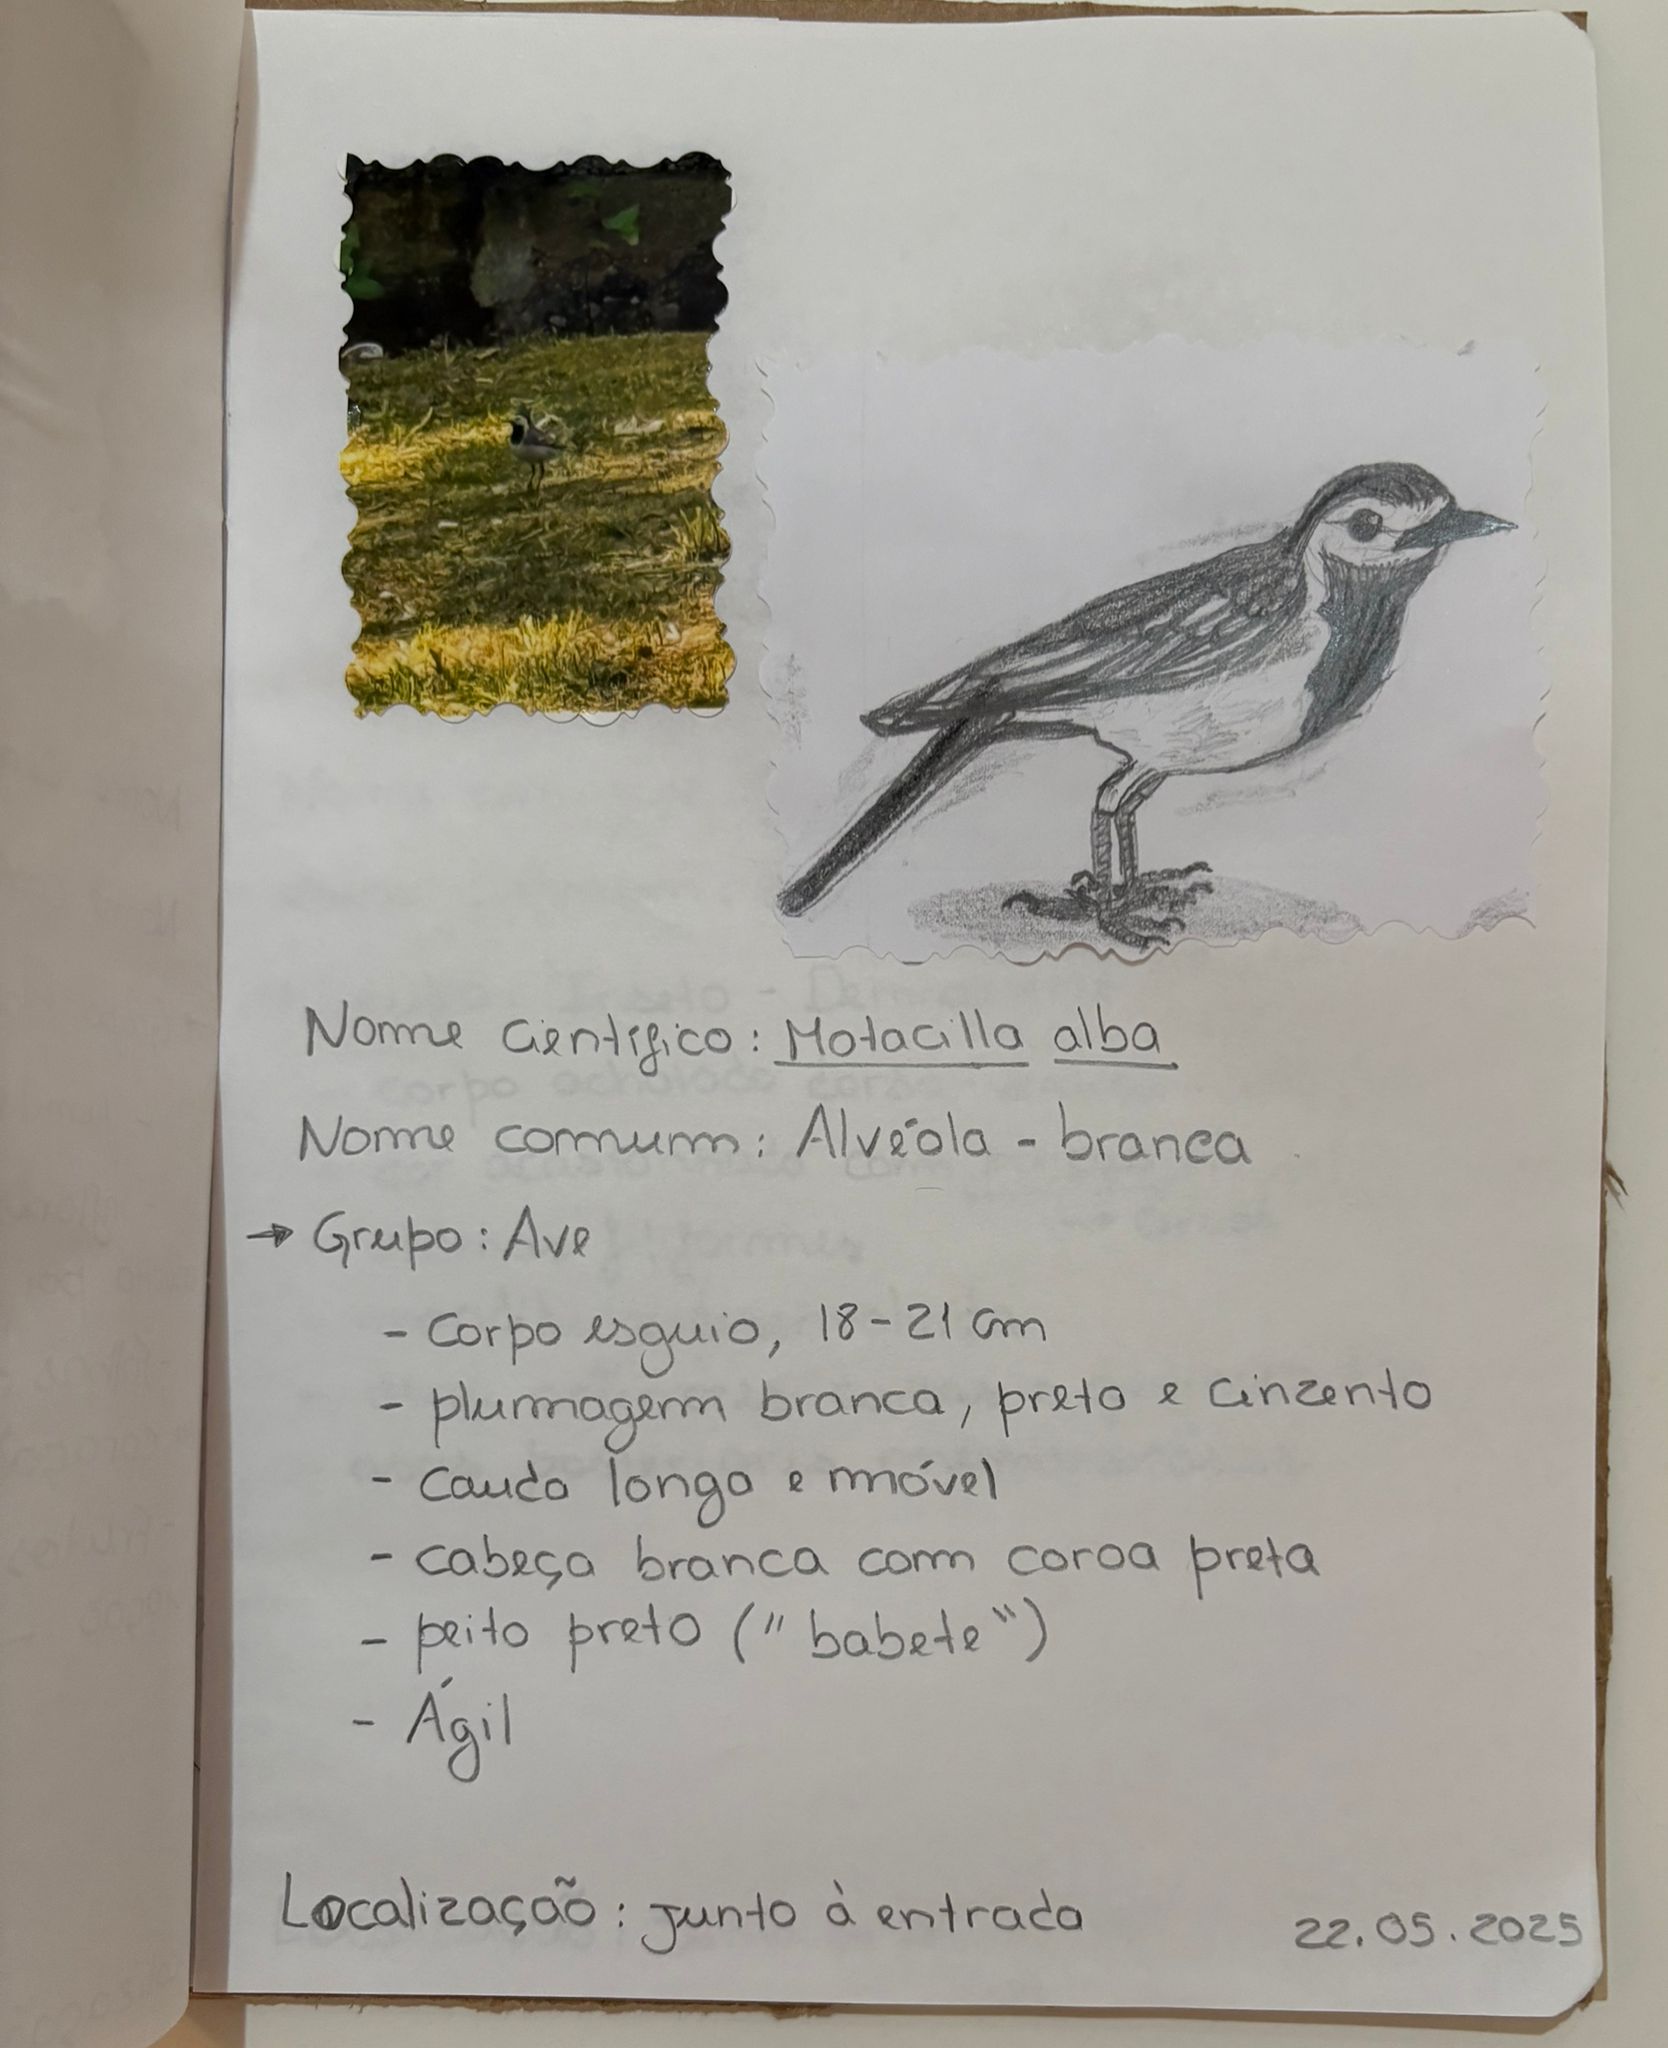 Nome científico: Motacilla alba
Nome comum: Alvéola - branca
→ Grupo: Ave
- Corpo esguio, 18-21 cm
- plumagem branca, preto e cinzento
- cauda longa e móvel
- cabeça branca com coroa preta
- peito preto ("babete")
- Ágil
Localização: junto à entrada
22.05.2025